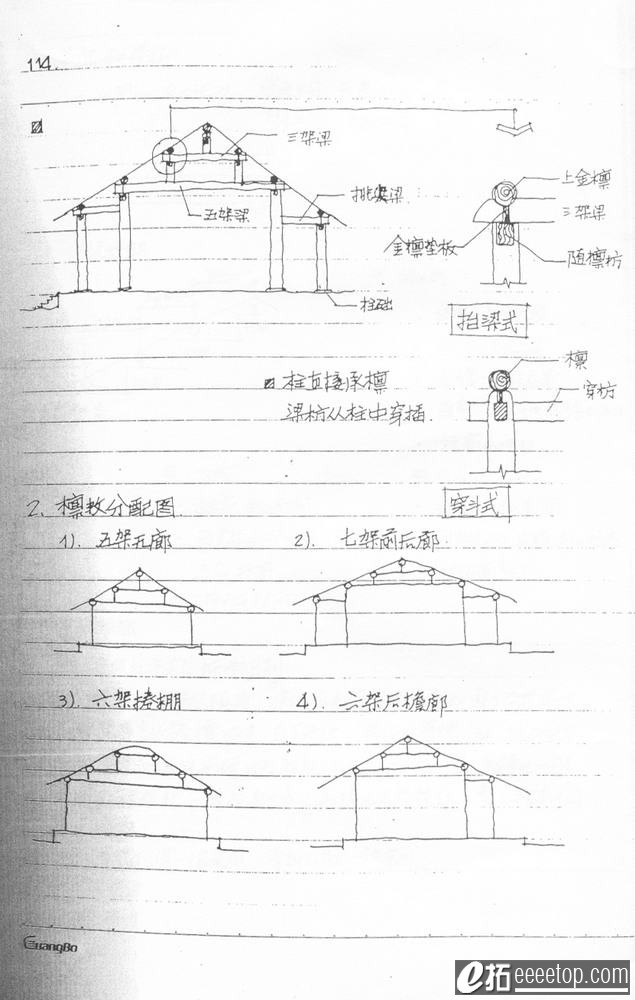 114.
三架梁
五架梁
抱头梁
柱础
上金檩
三架梁
金檩垫板
随檩枋
抬梁式
柱直接承檩
梁枋从柱中穿插.
檩
穿枋
穿斗式
2、檩数分配图.
1). 五架无廊
2). 七架前后廊
3). 六架捲棚
4). 六架后檐廊
GuangBo
e拓eeeetop.com